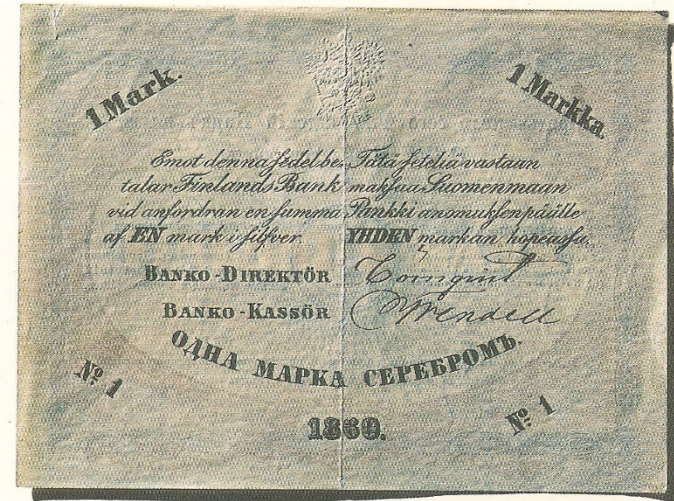 1 Mark.
1 Markka.
Emot denna sedel be-
talar Finlands Bank
vid anfordran en summa
af EN mark i silfver.
Tätä seteliä vastaan
maksaa Suomenmaan
Pankki anomuksen päälle
YHDEN markan hopeassa.
BANKO-DIREKTÖR
BANKO-KASSÖR Wendell
ОДНА МАРКА СЕРЕБРОМЪ.
№ 1
№ 1
1860.